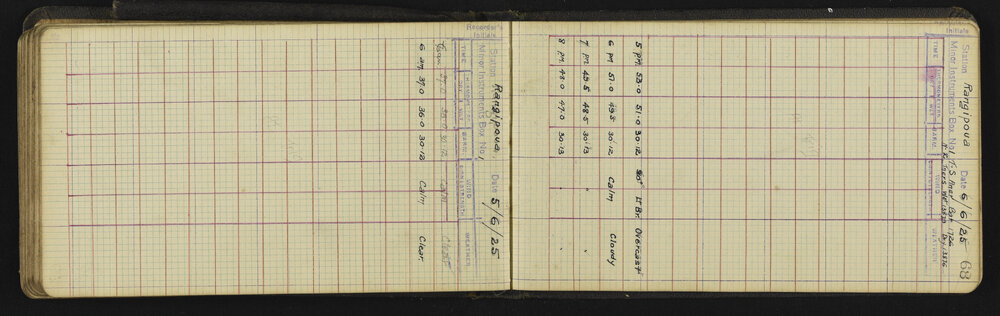 Recorder's
Initials
Station Rangipoua Date 5/6/25
Minor Instruments Box No. 1
TIME THERMOMETERS BARR. WIND WEATHER
DRY WET DIRN STRENGTH
7 am 37.0 36.0 30.12 Calm Clear
6 am 37.0 36.0 30.12 Calm Clear.
Initials
Station Rangipoua Date 6/6/25 68
Minor Instruments Box No. 1
TIME THERMOMETERS BARR. WIND WEATHER
DRY WET STRENGTH
5 pm 53.0 51.0 30.12 Lt Br. Overcast
6 pm 51.0 49.5 30.12 Calm Cloudy
7 pm 49.5 48.5 30.13 " "
8 pm 48.0 47.0 30.13 " "